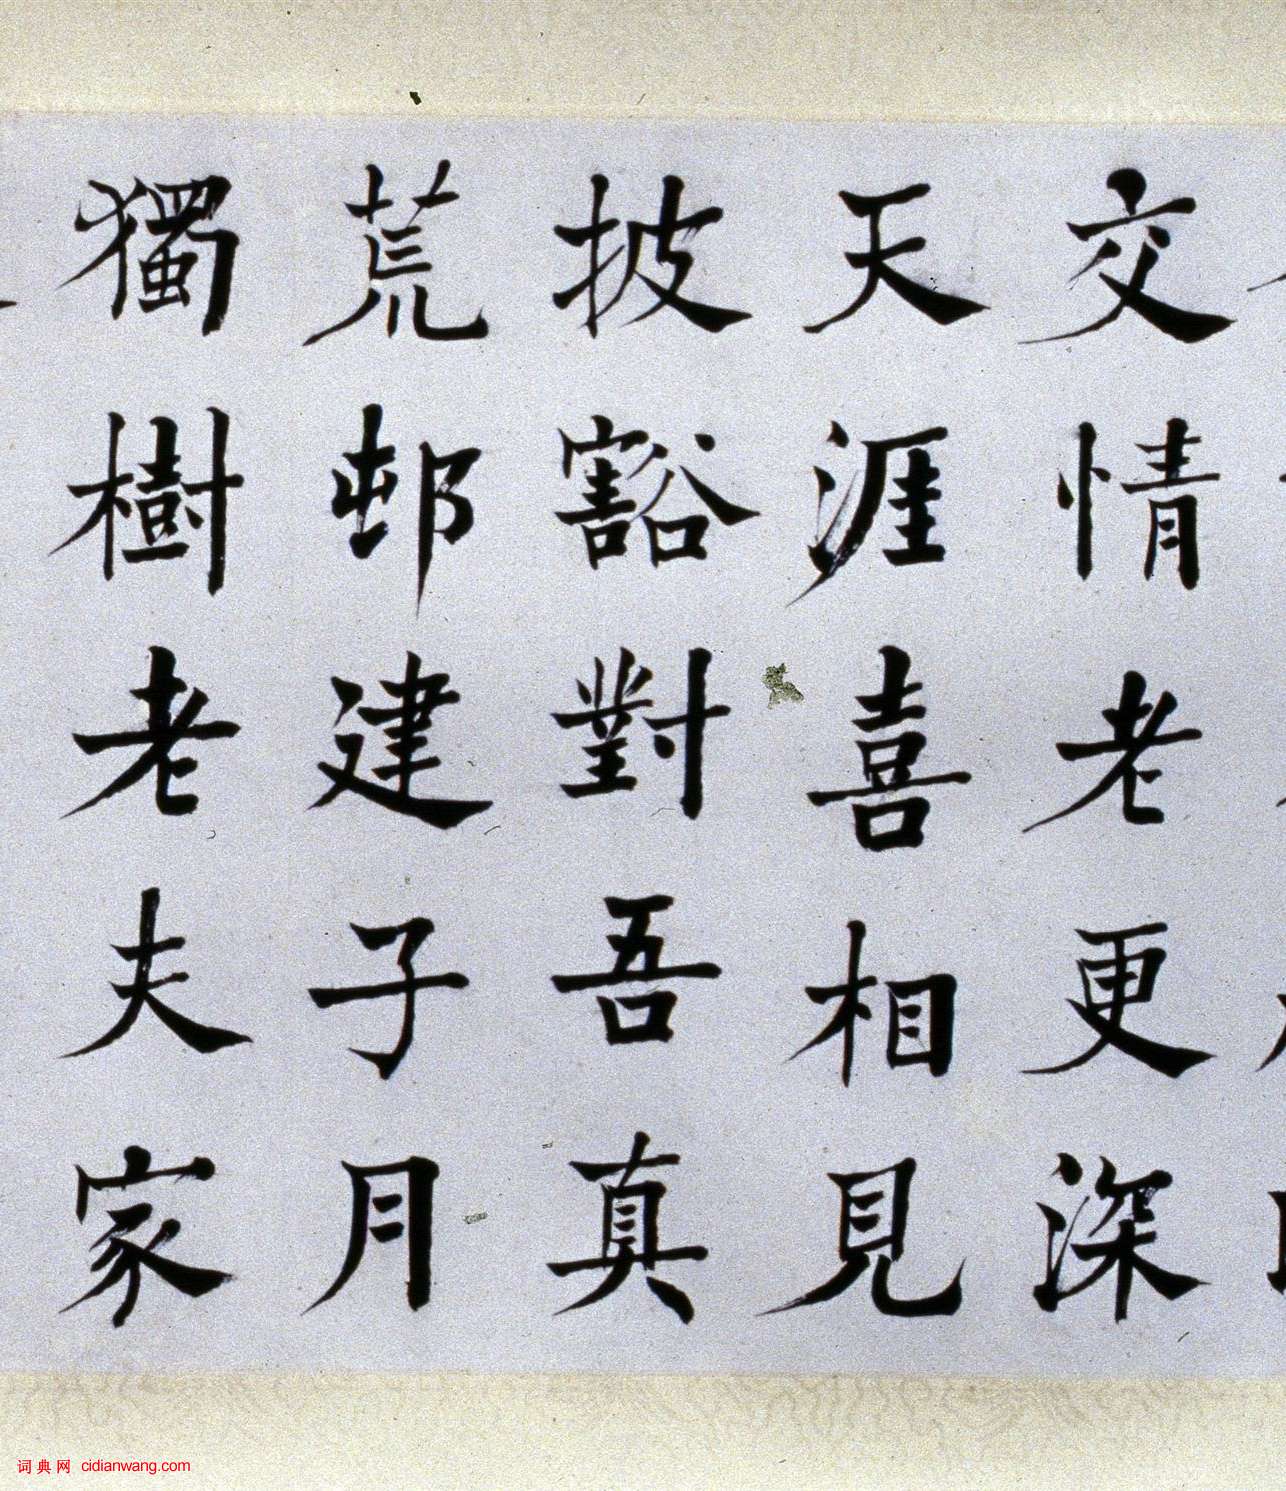 交情老更深
天涯喜相見
披豁對吾真
荒邨建子月
獨樹老夫家
词典网 cidianwang.com